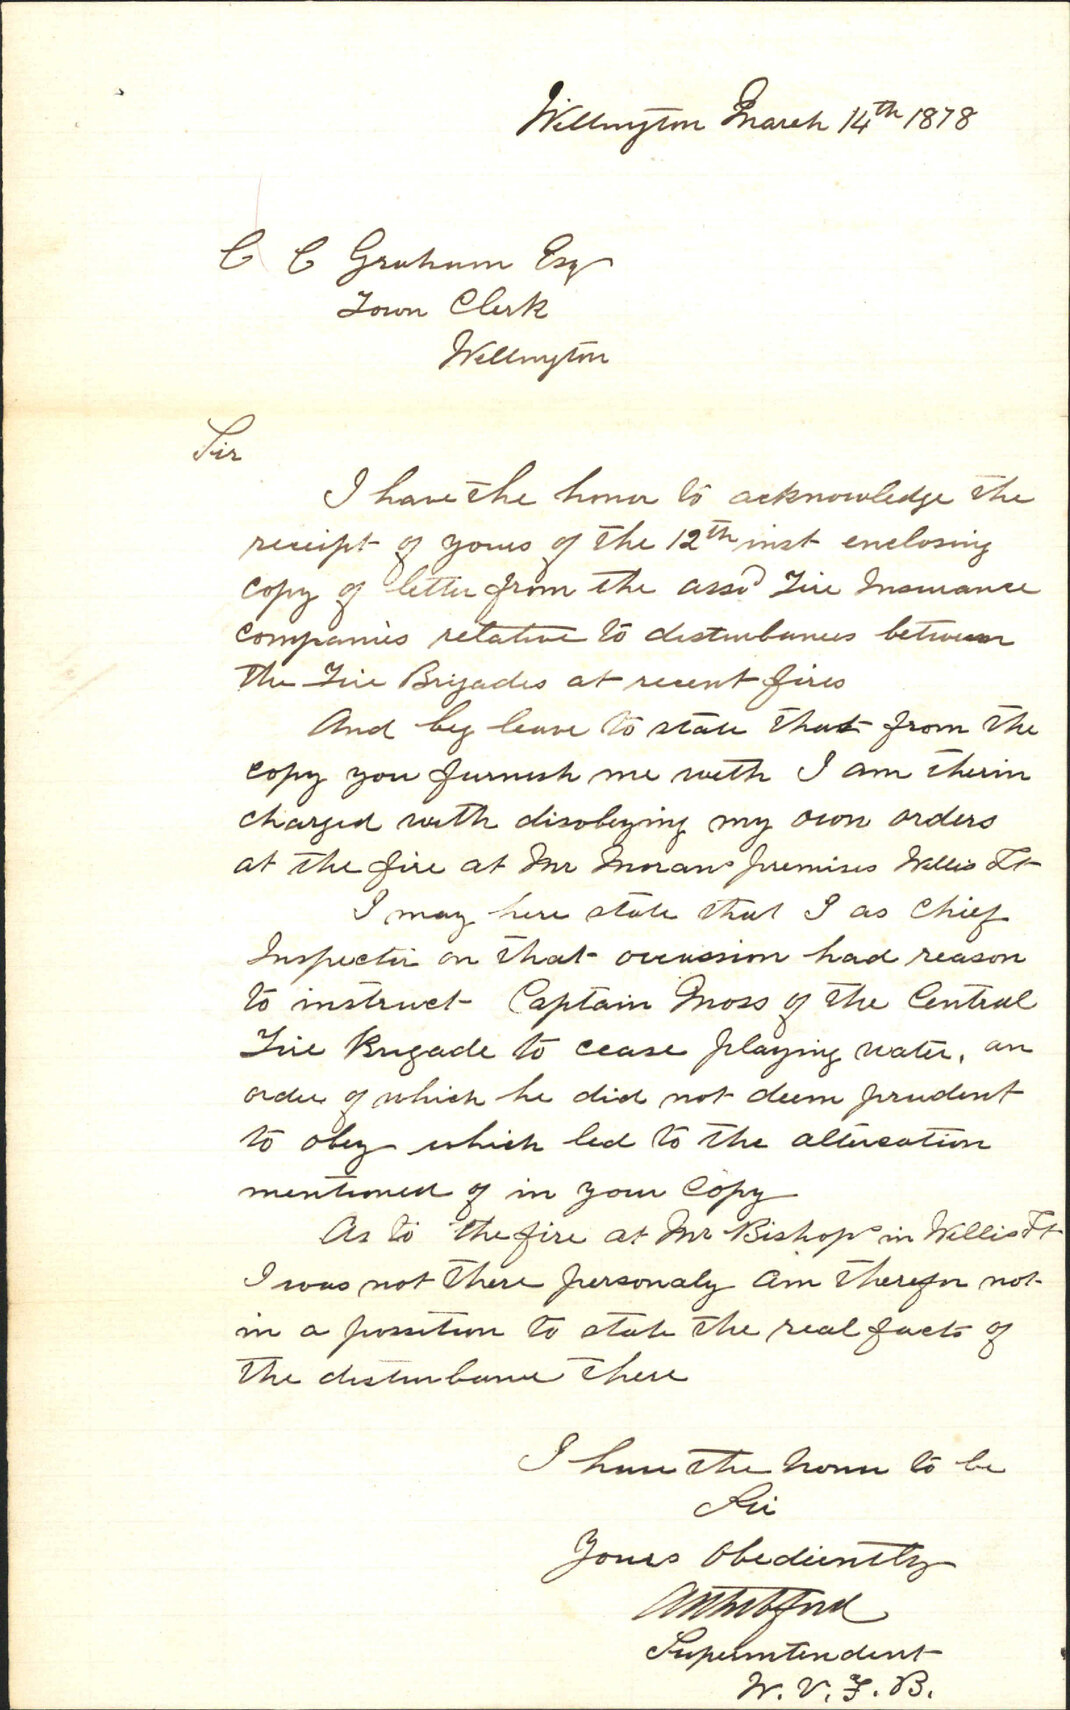 Wellington March 14th 1878
C C Graham Esq
Town Clerk
Wellington
Sir
I have the honor to acknowledge the
receipt of yours of the 12th inst enclosing
copy of letter from the assd Fire Insurance
companies relative to disturbances between
the Fire Brigades at recent fires
And beg leave to state that from the
copy you furnish me with I am therin
charged with disobeying my own orders
at the fire at Mr Morans premises Willis St
I may here state that I as Chief
Inspector on that occassion had reason
to instruct Captain Moss of the Central
Fire Brigade to cease playing water, an
order of which he did not deem prudent
to obey which led to the altercation
mentioned of in your Copy
As to the fire at Mr Bishops in Willis St
I was not there personaly am therefor not
in a possition to state the real facts of
the disturbance there
I have the honor to be
Sir
Yours Obediently
Superintendent
W. V. F. B.